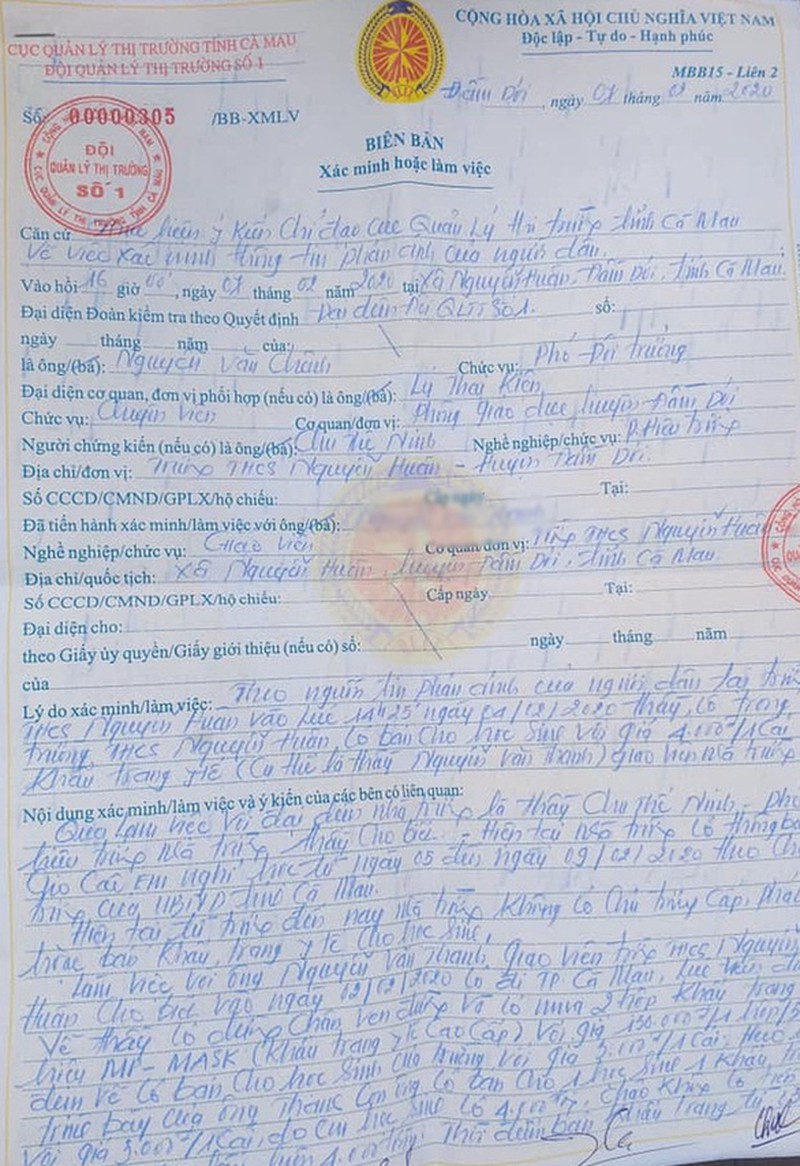 CỤC QUẢN LÝ THỊ TRƯỜNG TỈNH CÀ MAU
ĐỘI QUẢN LÝ THỊ TRƯỜNG SỐ 1
CỘNG HÒA XÃ HỘI CHỦ NGHĨA VIỆT NAM
Độc lập - Tự do - Hạnh phúc
MBB15 - Liên 2
Đầm Dơi, ngày 07 tháng 02 năm 2020
Số: 00000305 /BB-XMLV
ĐỘI
QUẢN LÝ THỊ TRƯỜNG
SỐ 1
BIÊN BẢN
Xác minh hoặc làm việc
Căn cứ Thực hiện ý kiến chỉ đạo Cục Quản Lý thị trường tỉnh Cà Mau
Về việc xác minh thông tin phản ánh của người dân.
Vào hồi 16 giờ 00, ngày 07 tháng 02 năm 2020 tại Xã Nguyễn Huân, Đầm Dơi, tỉnh Cà Mau.
Đại diện Đoàn kiểm tra theo Quyết định Đại diện Đội QLTT Số 1. số:
ngày tháng năm của:
là ông/(bà): Nguyễn Văn Chánh Chức vụ: Phó Đội trưởng
Đại diện cơ quan, đơn vị phối hợp (nếu có) là ông/(bà): Lý Thái Kiên
Chức vụ: Chuyên viên Cơ quan/đơn vị: Phòng giáo dục huyện Đầm Dơi
Người chứng kiến (nếu có) là ông/(bà): Chu Thế Ninh Nghề nghiệp/chức vụ: P. Hiệu trưởng
Địa chỉ/đơn vị: Trường THCS Nguyễn Huân - Huyện Đầm Dơi.
Số CCCD/CMND/GPLX/hộ chiếu: Cấp ngày Tại:
Đã tiến hành xác minh/làm việc với ông/(bà):
Nghề nghiệp/chức vụ: Giáo viên Cơ quan đơn vị: Trường THCS Nguyễn Huân
Địa chỉ/quốc tịch: Xã Nguyễn Huân, huyện Đầm Dơi, tỉnh Cà Mau.
Số CCCD/CMND/GPLX/hộ chiếu: Cấp ngày Tại:
Đại diện cho:
theo Giấy ủy quyền/Giấy giới thiệu (nếu có) số: ngày tháng năm
của
Lý do xác minh/làm việc: Theo nguồn tin phản ánh của người dân tại trường
THCS Nguyễn Huân vào lúc 14h25 ngày 04/02/2020 thấy, có trong
trường THCS Nguyễn Huân có bán cho học sinh với giá 4.000đ/1 cái
Khẩu trang y tế (cụ thể là thầy Nguyễn Văn Thanh) giáo viên nhà trường
Nội dung xác minh/làm việc và ý kiến của các bên có liên quan:
Qua làm việc với đại diện nhà trường là thầy Chu Thế Ninh - phó
hiệu trưởng nhà trường thầy cho biết: - Hiện tại nhà trường có thông báo
cho các em nghỉ học từ ngày 05 đến ngày 09/02/2020 theo
của UBND tỉnh Cà Mau.
Hiện tại từ trước đến nay nhà trường không có chủ trương cấp, phát
hoặc bán khẩu trang y tế cho học sinh.
Làm việc với ông Nguyễn Văn Thanh, giáo viên trường THCS Nguyễn
Huân cho biết vào ngày 02/02/2020 có đi TP Cà Mau, lúc trên
Về thấy có dừng chân ven đường và có mua 2 hộp khẩu trang
hiệu MP-MASK (khẩu trang y tế cao cấp) với giá 150.000đ/1 hộp/5
đem về có bán cho học sinh của trường với giá 3.000đ/1 cái, theo
trình bày của ông Thanh còn ông có bán cho 1 học sinh 1 khẩu
với giá 3.000đ/1 cái, do em học sinh có 4.000đ,
khẩu trang